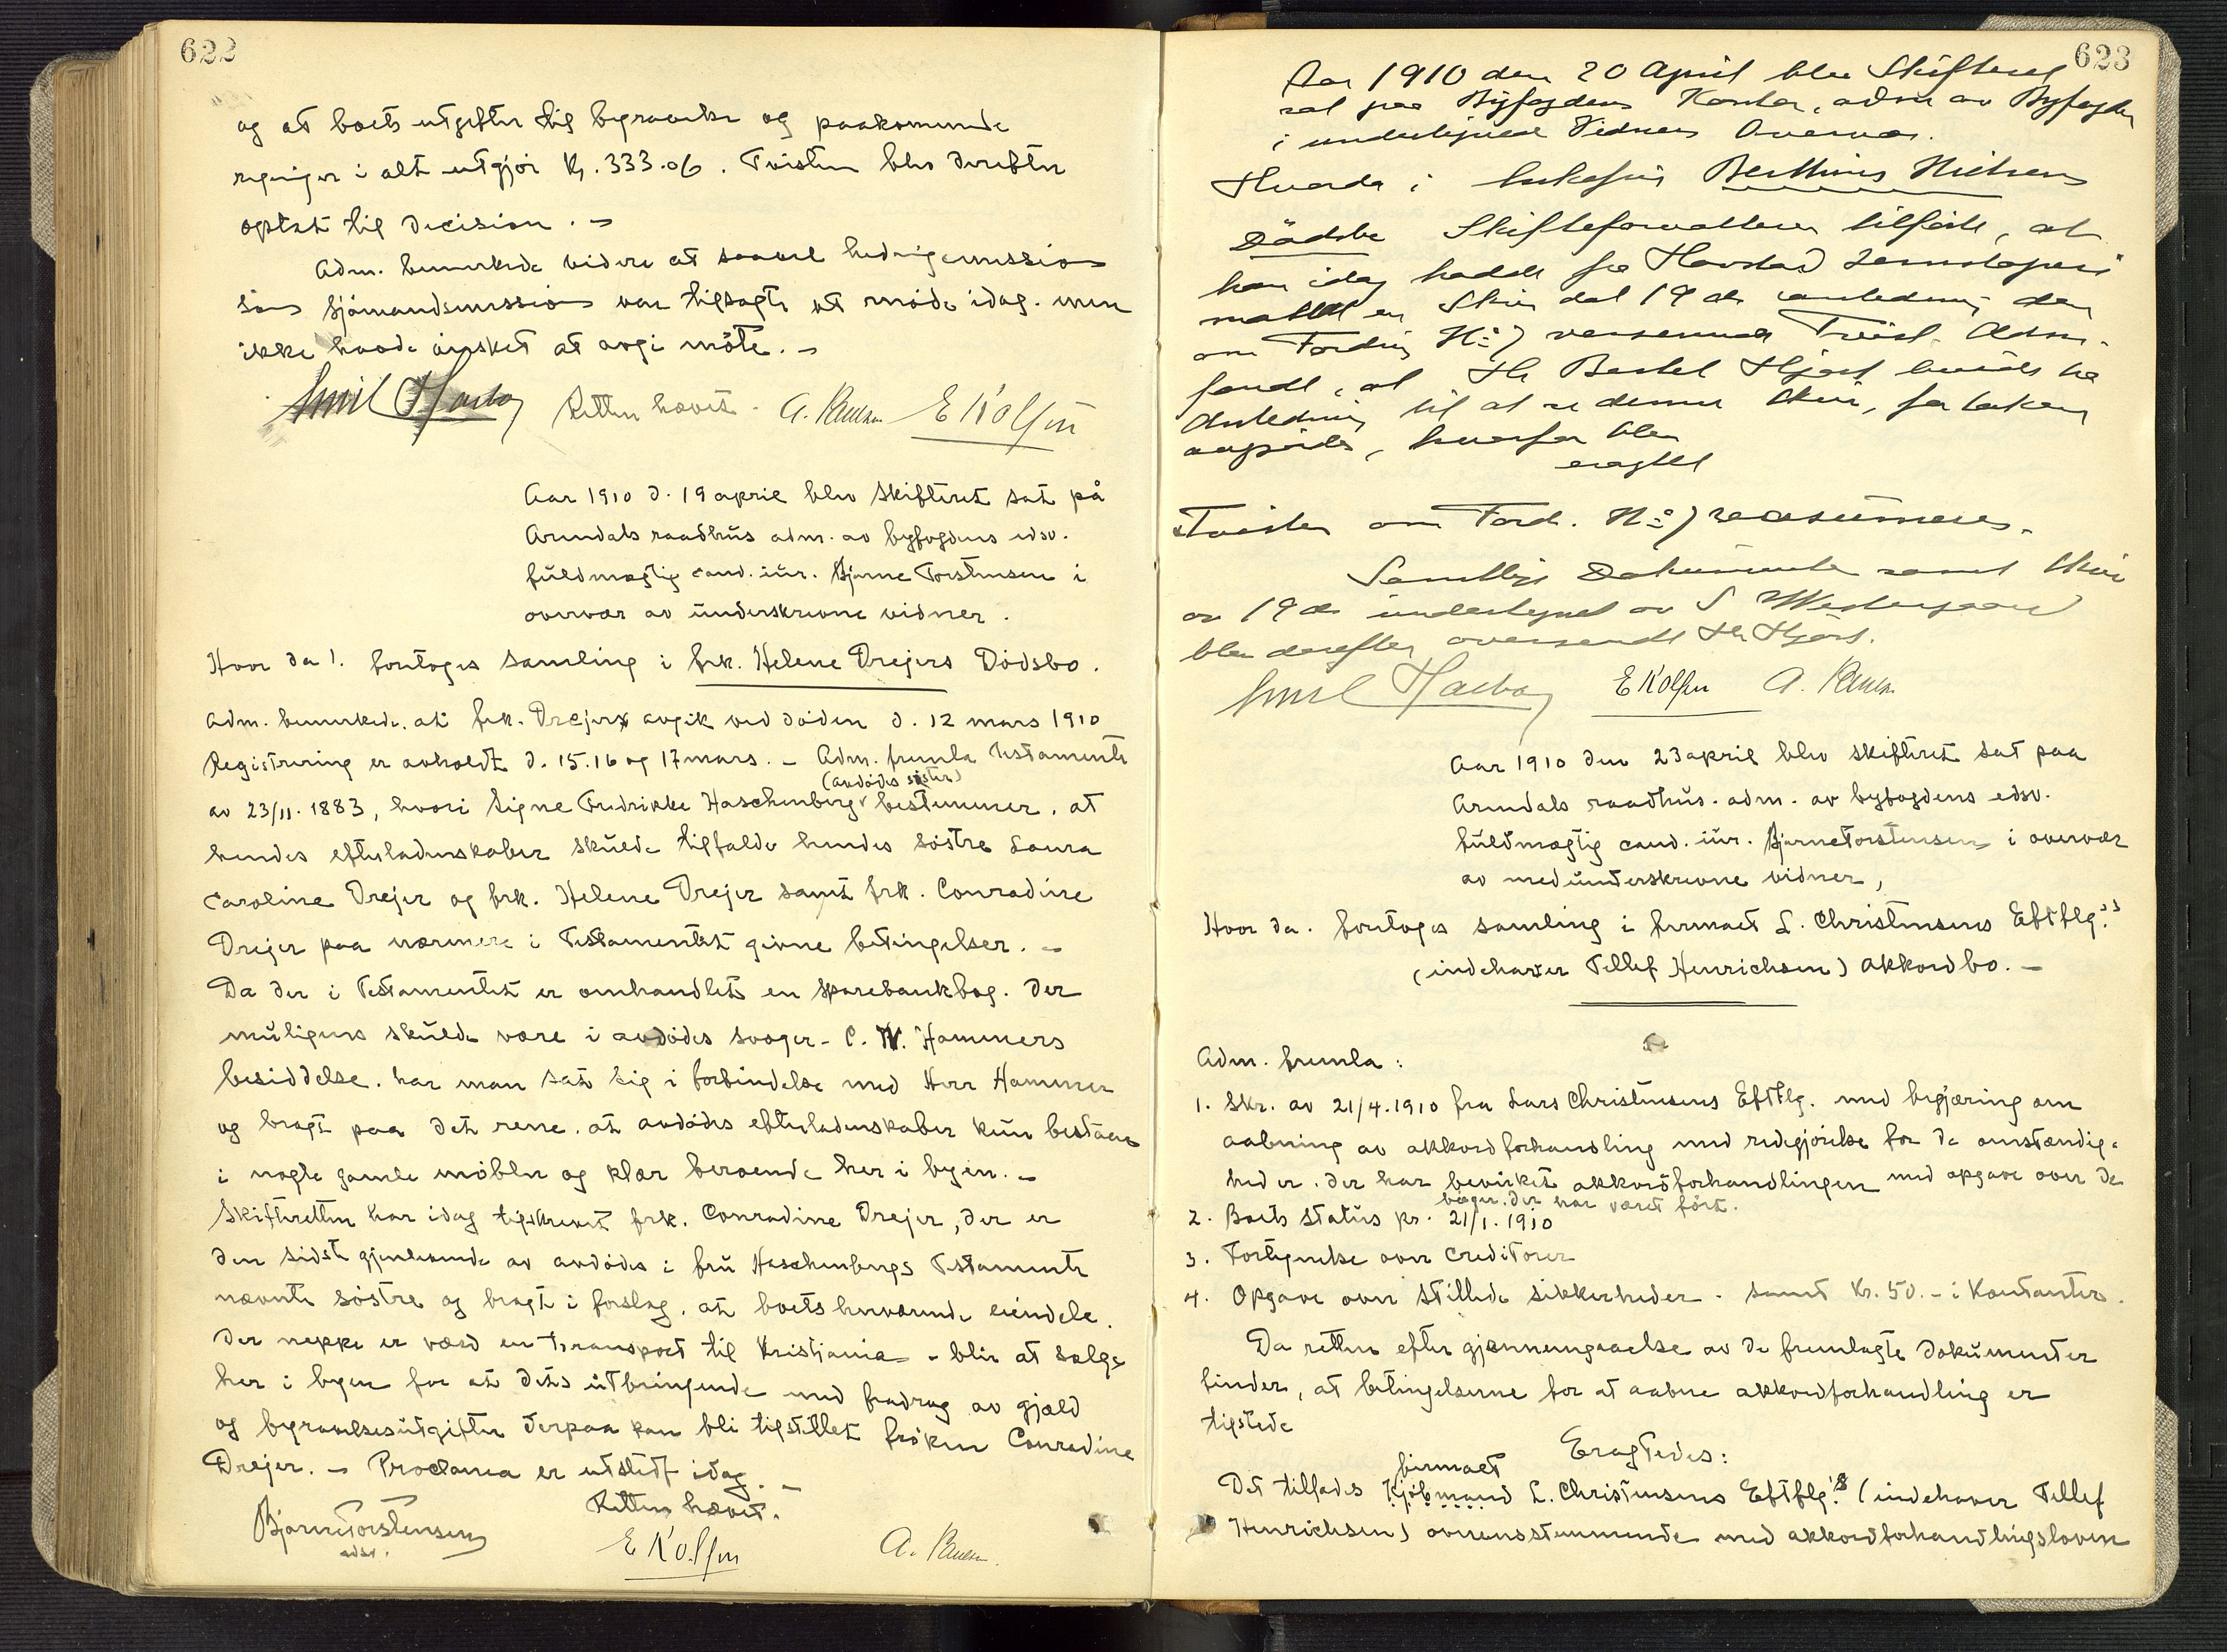 622
og at boets utgifter til begravelse og paakommende
regninger i alt utgjør Kr. 333.06. Tvisten blev derefter
optat til decision. –
Adm. bemerkede videre at saavel hedningemission
som sjømandsmission var tilsagt at møde idag. men
ikke havde ønsket at avgi møte. –
Emil Retten hævet. A. Paulsen E Kolfin
Aar 1910 d. 19 april blev skifteret sat på
Arendals raadhus adm. av byfogdens edsv.
fuldmægtig cand. iur. Bjarne Torstensen i
overvær av underskrevne vidner.
Hvor da!. foretoges samling i frk. Helene Drejers Dødsbo.
Adm. bemerkede. at frk. Drejer avgik ved døden d. 12 mars 1910
Registrering er avholdt d. 15. 16 og 17 mars. – Adm. fremla Testamente
(avdødes søster)
av 23/11. 1883, hvori Signe Fredrikke Haschenberg bestemmer. at
hendes efterladenskaber skulde tilfalde hendes søstre Laura
Caroline Drejer og frk. Helene Drejer samt frk. Conradine
Drejer paa nærmere i Testamentet givne betingelser. –
Da der i Testamentet er omhandlet en sparebankbog. der
muligens skulde være i avdødes svoger – C. W. Hammers
besiddelse. har man sat sig i forbindelse med Herr Hammer
og bragt paa det rene. at avdødes efterladenskaber kun bestaar
i nogle gamle møbler og klær beroende her i byen. –
Skifteretten har idag tilskrevet frk. Conradine Drejer, der er
den sidst gjenlevende av avdødes i fru Haschenbergs Testamente
nævnte søstre og bragt i forslag. at boets herværende eiendele.
der neppe er værd en transport til Kristiania – blir at sælge
her i byen for at dets utbringende med fradrag av gjæld
og begravelsesutgifter derpaa kan bli tilstillet frøken Conradine
Drejer. – Proclama er utstedt idag. –
Retten hævet.
Bjarne Torstensen
edsv.
E Kolfin A. Paulsen.
623
Aar 1910 den 20 April blev Skifteret
sat paa Byfogdens Kontor, adm av Byfogden
i undertegnede Vidners Overvær.
Hvorda i Berthines Nielsens
Dødsbo Skifteforvalteren tilførte, at
han idag hadde fra Havstad
mottat en Skriv dat 19 ds anledning den
om Fordring No 7 verserende Tvist. Adm.
fandt, at Hr Bertel Hjort burde ha
Anledning til at se denne Skriv, før saken
avgjordes, hvorfor blev
eragtet
Tvisten om Ford. No 7 reasumeres.
Samtlige Dokumenter samt Skriv
av 19 ds undertegnet av S Westergaard
blev derefter oversendt Hr Hjort.
Emil E Kolfin A. Paulsen
Aar 1910 den 23 april blev skifteret sat paa
Arendals raadhus. adm. av byfogdens edsv.
fuldmægtig cand. iur. Bjarne Torstensen i overvær
av medunderskrevne vidner,
Hvor da. foretoges samling i firmaet L. Christensens Eftflg.s
(indehaver Tellef Henrichsen) akkordbo. –
Adm. fremla:
1. Skr. av 21/4. 1910 fra Lars Christensens Eftflg. med begjæring om
aabning av akkordforhandling med redegjørelse for de omstændig-
heder. der har bevirket akkordforhandlingen med opgave over de
bøger. der har været ført.
2. Boets status pr. 21/1. 1910
3. Fortegnelse over creditorer
4. Opgave over stillede sikkerheder. samt Kr. 50. – i Kontanter.
Da retten efter gjennemgaaelse av de fremlagte dokumenter
finder, at betingelserne for at aabne akkordforhandling er
tilstede
Eragtedes:
firmaet
Det tillades Kjøbmand L. Christensens Eftflg.s (indehaver Tellef
Henrichsen) overensstemmende med akkordforhandlingsloven